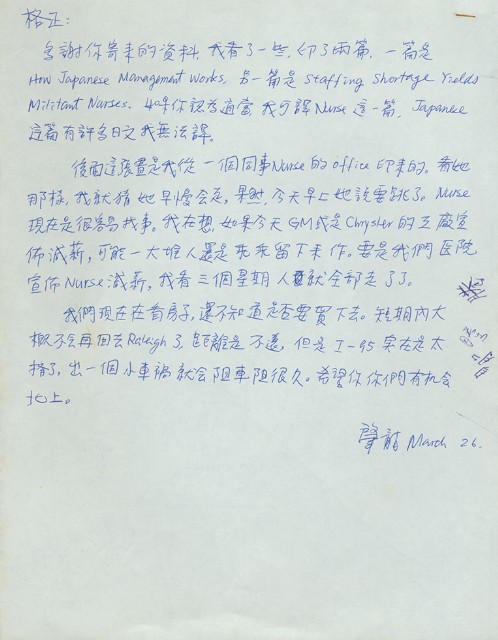 格正:
多謝你寄來的資料, 我看了一些, 印了兩篇. 一篇是
How Japanese Management Works, 另一篇是 Staffing Shortage Yields
Militant Nurses. 如果你認為適當 我可譯 Nurse 這一篇, Japanese
這篇有許多日文我無法譯。
後面這張畫是我從一個同事Nurse的office印來的. 看她
那樣, 我就猜她早晚會走, 果然, 今天早上她說要跳了. Nurse
現在是很容易找事. 我在想, 如果今天GM或是Chrysler的工廠宣
佈減薪, 可能一大堆人還是乖乖留下來作。要是我們医院
宣佈Nurse減薪, 我看三個星期人就全部走了了.
我們現在在看房子, 還不知道是否要買下去. 短期內大
概不会再回去Raleigh了, 距離是不遠, 但是I-95实在是太
擠了, 出一個小車禍就会阻車阻很久。希望你你們有机会
北上。
聲龍 March 26.